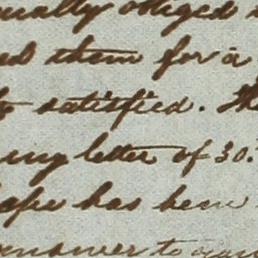 ually obliged
ed them for a
to satisfied. Th
ing letter of 30.
hape has been
answer to your